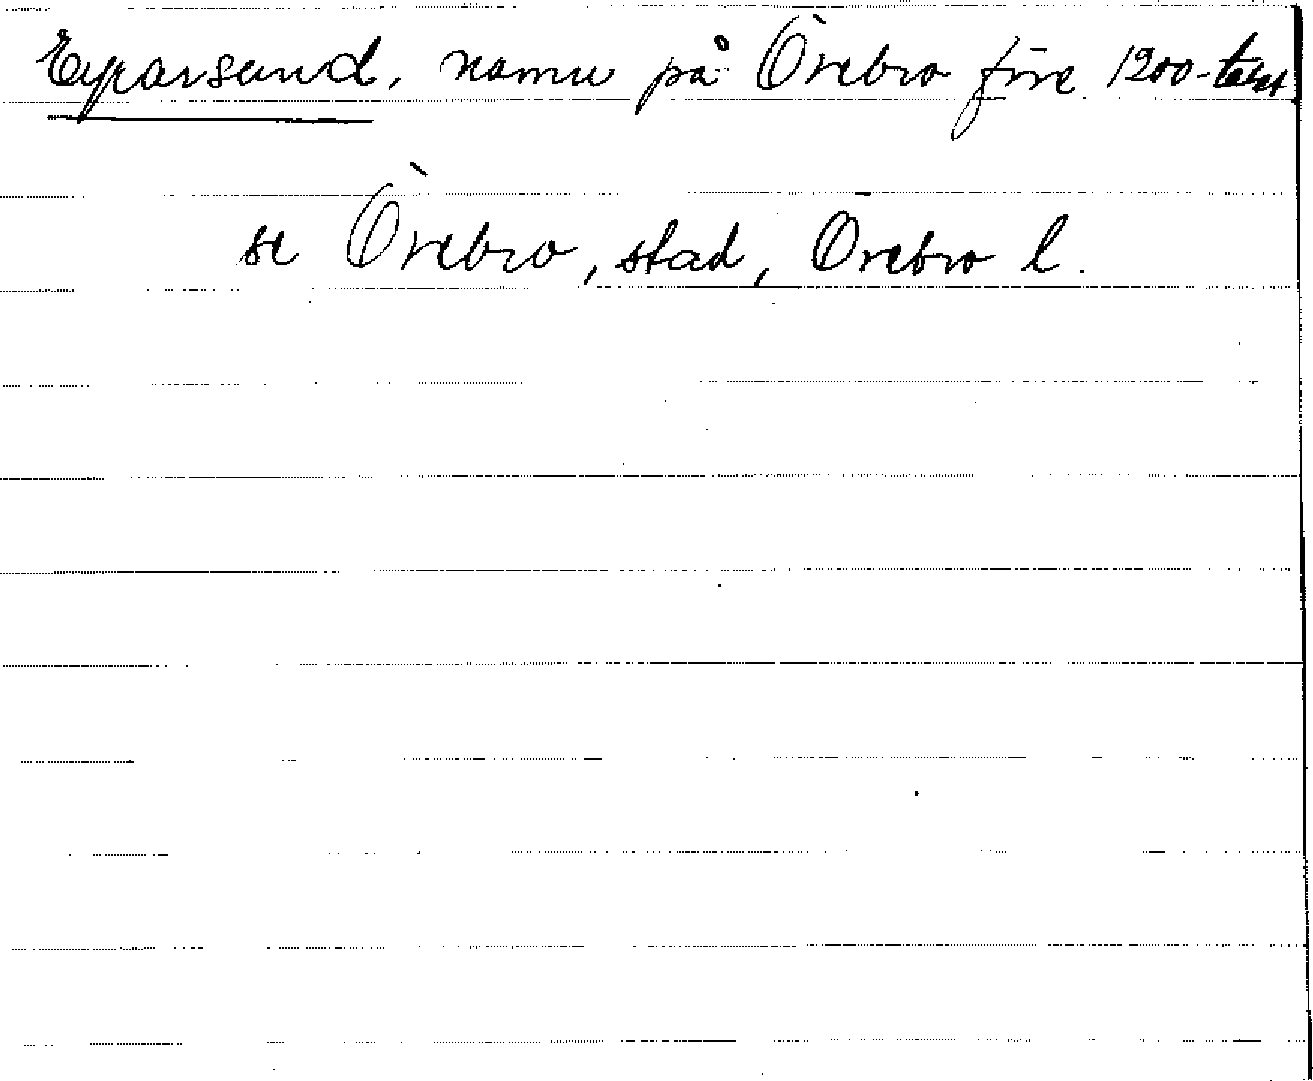 Eyrarsund, namn på Örebro före 1200-talet
se Örebro, stad, Örebro l.